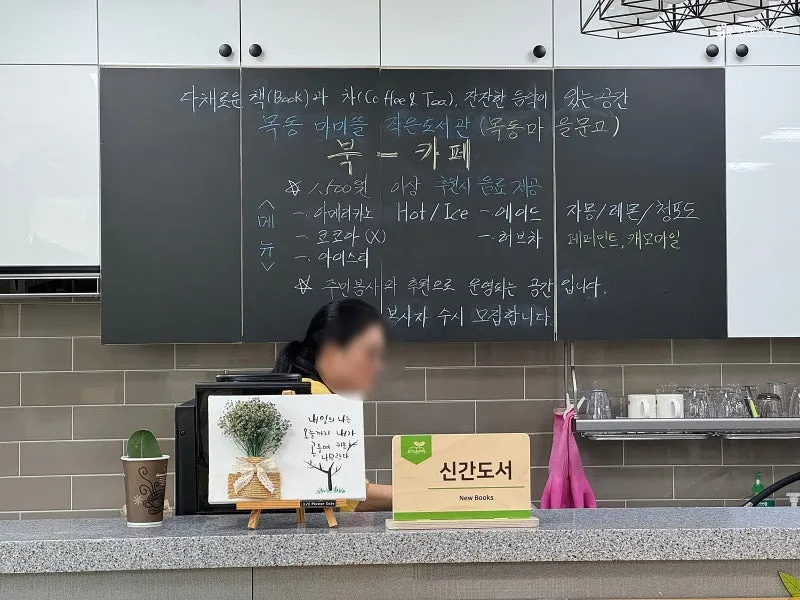 다채로운 책(Book)과 차(Coffee & Tea), 잔잔한 음악이 있는 공간
목동 마미뜰 작은도서관 (목동마을문고)
북 - 카페
☆ 1,500원 이상 후원시 음료 제공
<메뉴>
-. 아메리카노 Hot / Ice -. 에이드 자몽/레몬/청포도
-. 코코아 (X) -. 허브차 페퍼민트, 캐모마일
-. 아이스티
☆ 주민봉사와 후원으로 운영되는 공간입니다.
봉사자 수시 모집합니다.
내일의 나는
오늘까지 내가
나무란다
신간도서
New Books